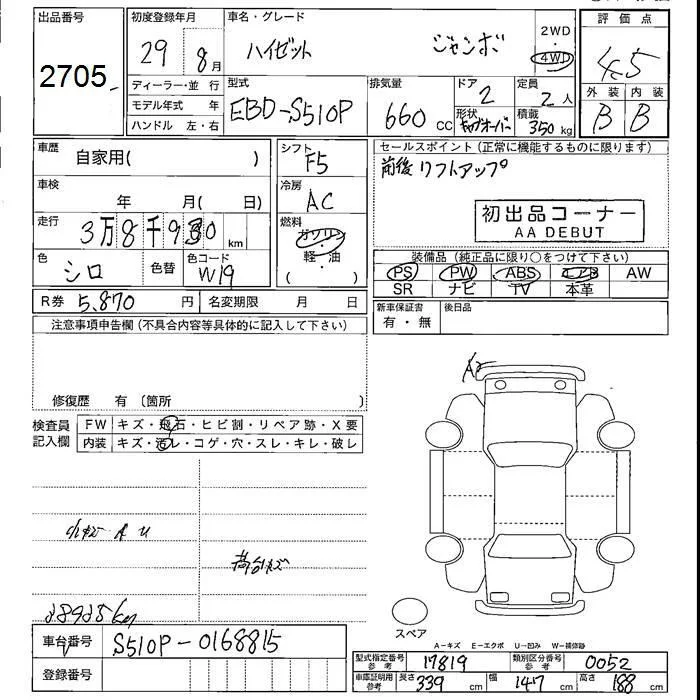 出品番号
2705
初度登録年月
29 8月
車名・グレード
ハイゼット ジャンボ
2WD
4WD
評価点
4.5
外装 内装
B B
ディーラー・並行
モデル年式 年
ハンドル 左・右
型式
EBD-S510P
排気量
660 CC
ドア
2
形状
キャブオーバー
定員
2人
積載
350kg
車歴
自家用( )
車検
年 月( 日)
走行
3万8千930km
色
シロ
色替
色コード
W19
シフト
F5
冷房
AC
燃料
ガソリン
軽・油
( )
セールスポイント(正常に機能するものに限ります)
前後リフトアップ
初出品コーナー
AA DEBUT
装備品(純正品に限り○をつけて下さい)
PS PW ABS エアB AW
SR ナビ TV 本革
新車保証書
有・無
後日品
R券 5,870円
名変期限 月 日
注意事項申告欄(不具合内容等具体的に記入して下さい)
修復歴 有(箇所
検査員
記入欄
FW キズ・飛石・ヒビ割・リペア跡・X要
内装 キズ・汚レ・コゲ・穴・スレ・キレ・破レ
A U
荷台キズ
38925km
スペア
車台番号
S510P-0168815
登録番号
A-キズ E-エクボ U-凹み W-補修跡
型式指定番号
参考
17819
類別区分番号
参考
0052
車庫証明用
参考
長さ 339cm
幅 147cm
高さ 188cm